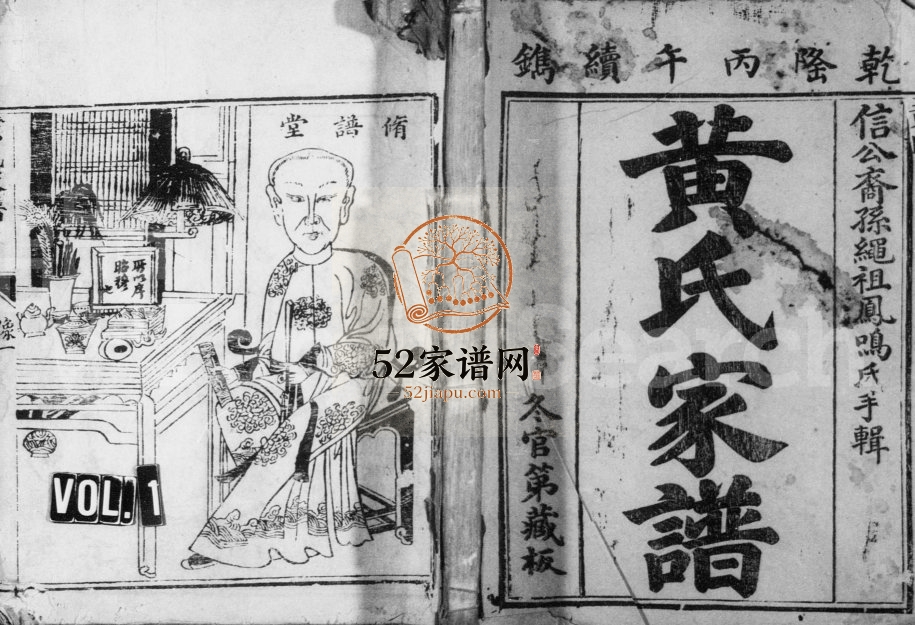 乾隆丙午續鐫
信公裔孫繩祖鳳鳴氏手輯
黃氏家譜
冬官第藏板
脩譜堂
所以序
昭穆
也
像一
VOL. 1
52家谱网
52jiapu.com